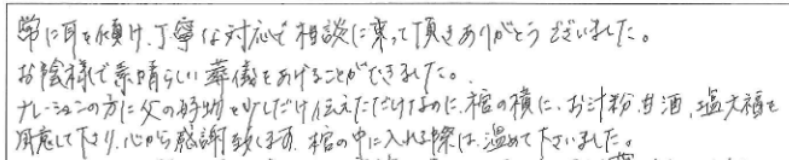 常に耳を傾け、丁寧な対応で相談に乗って頂きありがとうございました。
お陰様で素晴らしい葬儀をあげることができました。
ナレーションの方に父の好物を少しだけ伝えただけなのに、棺の横に、お汁粉、甘酒、塩大福を
用意して下さり、心から感謝致します。棺の中に入れる際は、温めて下さいました。